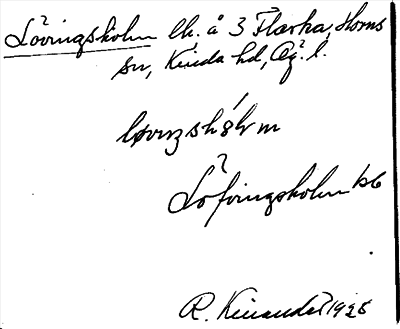 Lövingsholm lh. å 3 Flarka, Horns
sn, Kinda hd, Ög. l.
Löfvingsholm
R. Kinander 1925